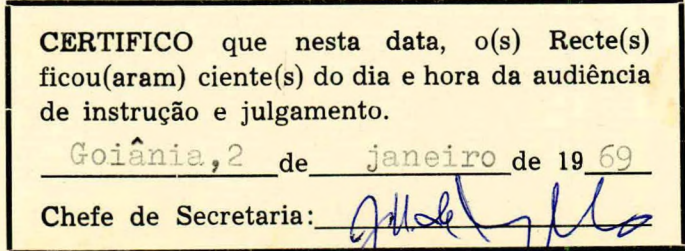 CERTIFICO que nesta data, o(s) Recte(s)
ficou(aram) ciente(s) do dia e hora da audiência
de instrução e julgamento.
Goiânia, 2 de janeiro de 19 69
Chefe de Secretaria: